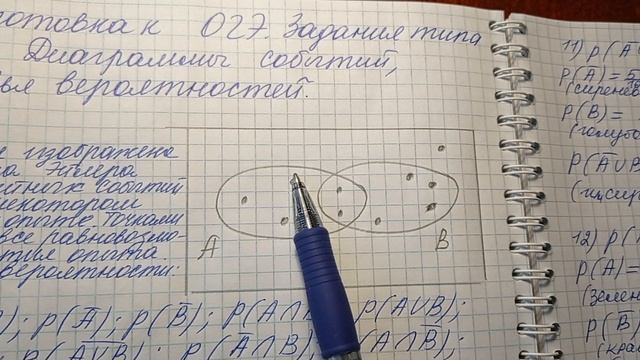 отовка к ОГЭ. Задания типа
Диаграммы событий,
вероятностей.
изображена
Эйлера
событий
некотором
опыте точками
все равновозмо-
опыта.
вероятности:
A
B
P(A̅); P(B̅); P(A∩ P(A∪B);
P(A̅∪̅B̅); P(A∩B) A∩B̅
11) P(A
P(A) = 5
(сиренев
P(B) =
(голубо
P(A∪B
12) P(
P(A) =
(зелен
P(B̅) =
(кра